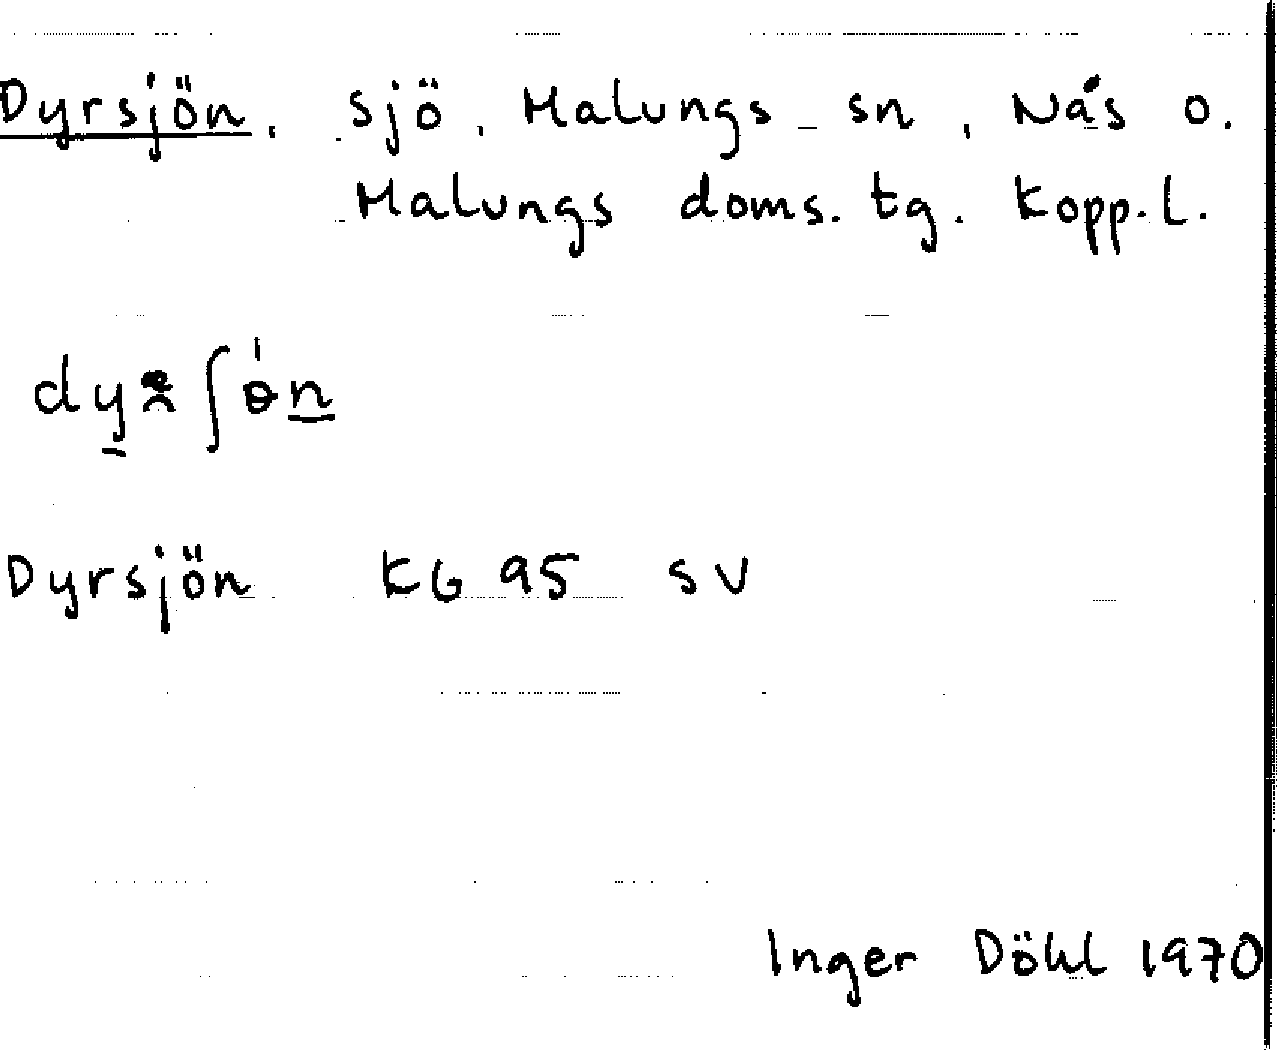 Dyrsjön. sjö. Malungs sn, Nås o.
Malungs doms. tg. Kopp.l.
Dyrsjön KG 95 SV
Inger Döhl 1970